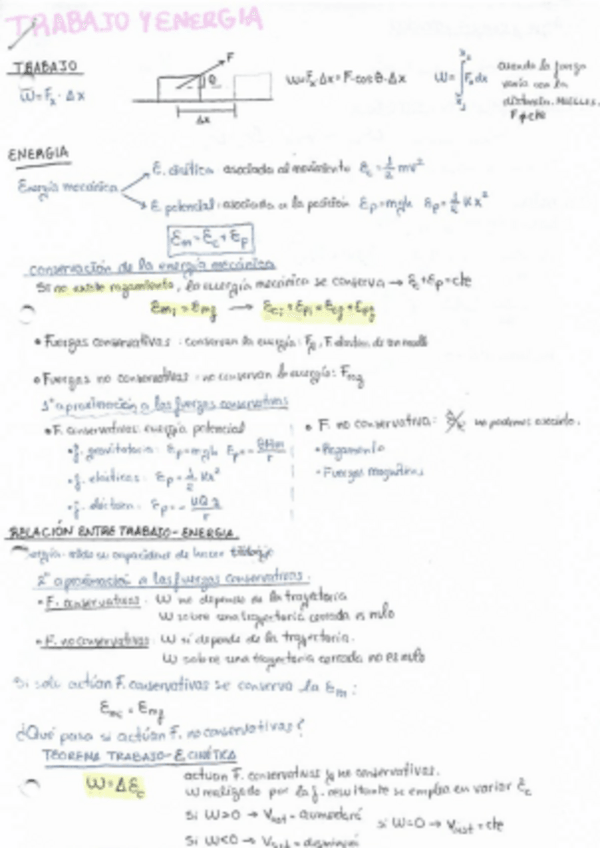 TRABAJO Y ENERGIA
TRABAJO
W = Fx · Δx
F
θ
Δx
W = Fx · Δx = F · cos θ · Δx
W = ∫ Fx dx
cuando la fuerza
varía con la
distancia. MUELLES.
F ≠ cte
ENERGIA
Energía mecánica
E. cinética asociada al movimiento Ec = 1/2 mv²
E. potencial: asociada a la posición Ep = mgh Ep = 1/2 Kx²
Em = Ec + Ep
conservación de la energía mecánica
Si no existe rozamiento, la energía mecánica se conserva → Ec + Ep = cte
Emi = Emf → Eci + Epi = Ecf + Epf
• Fuerzas conservativas: conservan la energía: F. elástica de un muelle
• Fuerzas no conservativas: no conservan la energía:
1ª aproximación a las fuerzas conservativas
• F. conservativas: energía potencial
• f. gravitatoria: Ep = mgh Ep = - GMm/r
• f. elástica: Ep = 1/2 Kx²
• f. eléctrica: Ep =
• F. no conservativa: no podemos
• Rozamiento
• Fuerzas magnéticas
RELACIÓN ENTRE TRABAJO - ENERGIA.
capacidad de hacer trabajo
2ª aproximación a las fuerzas conservativas.
• F. conservativas: W no depende de la trayectoria
W sobre una trayectoria cerrada es nulo
• F. no conservativas: W sí depende de la trayectoria.
W sobre una trayectoria cerrada no es nulo
Si solo actúan F. conservativas se conserva la Em:
Emi = Emf
¿Qué pasa si actúan F. no conservativas?
TEOREMA TRABAJO - E. CINÉTICA
W = ΔEc
actúan F. conservativas y no conservativas.
W realizado por la f. resultante se emplea en variar Ec
Si W>0 → Vinst = aumentará
Si W=0 → Vinst = cte
Si W<0 → Vinst =